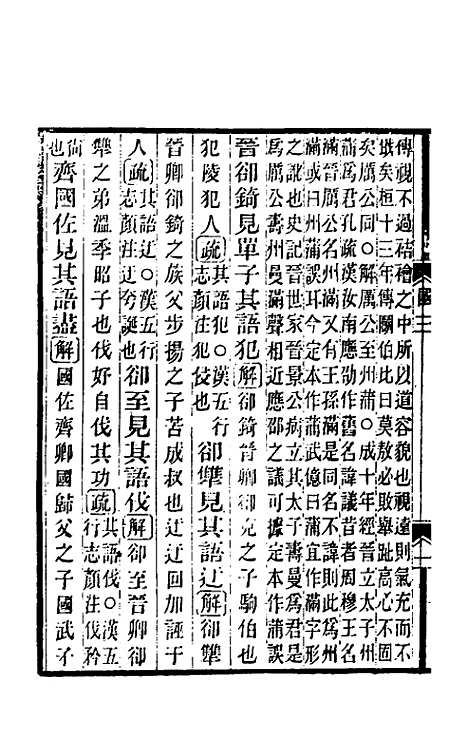 傳視不過袺襘之中所以道容貌也視遠則氣充而不
填矣桓十三年傳鬬伯比曰莫敖必敗舉趾高心不固
矣厲公同○解厲公至州蒲○成十年經晉立太子州
蒲爲君孔疏漢汝南應劭作舊名諱議昔者周穆王名
滿晉厲公名州滿又有王孫滿是同名不諱則此爲州
滿或曰州蒲誤耳今定本作蒲武億曰蒲宜作滿字形
之訛也史記晉世家晉景公病立其太子壽曼爲君是
爲厲公壽州曼滿聲相近應卲之議可據定本作蒲誤
晉郤錡見單子其語犯解郤錡晉卿郤克之子駒伯也
犯陵犯人疏其語犯○漢五行
志顏注犯侵也郤犫見其語迂解郤犫
晉卿郤錡之族父步揚之子苦成叔也迂迂回加誣于
人疏其語迂○漢五行
志顏注迂夸誕也郤至見其語伐解郤至晉卿郤
犫之弟溫季昭子也伐好自伐其功疏其語伐○漢五
行志顏注伐矜
尙
也齊國佐見其語盡解國佐齊卿國歸父之子國武子
國三